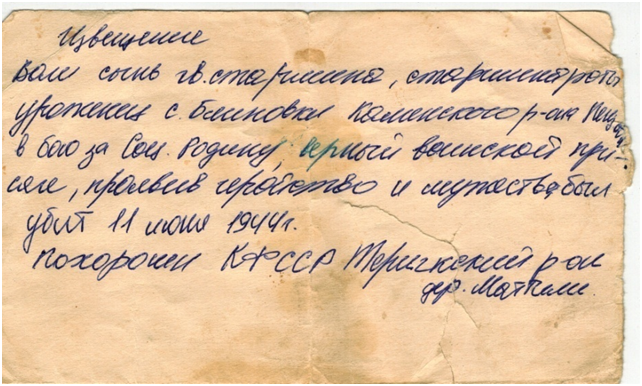 Извещение
Ваш сынъ гв. старшина, старшина роты
уроженец с. Блиновки Каменского р-она Пенз. обл.
в бою за Соц. Родину, верный воинской при-
сяге, проявив геройство и мужество был
убит 11 июня 1944 г.
похоронен КФССР р-он
дер.